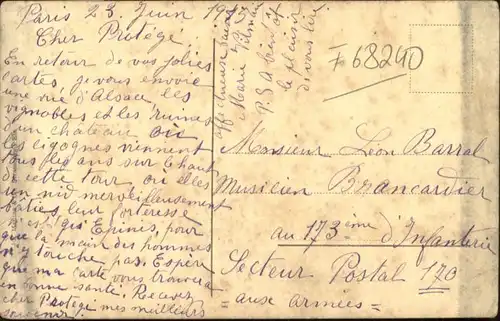 Paris 23 Juin 19
Cher Protégé
En retour de vos jolies
cartes je vous envoie
une vue d'Alsace les
vignobles et les ruines
d'un château où
les cigognes viennent
tous les ans sur le haut
de cette tour où elles
un nid merveilleusement
bâties leur forteresse
n'est qu' Epines, pour
que la main des hommes
n'y touche pas. Espère
que ma carte vous trouvera
en bonne santé. Recevez
cher Protégé mes meilleurs
souvenir!
affectueux
Marie
P.S A bientôt
le plaisir
d'vous lire
F68240
Monsieur Léon Barral
Musicien Brancardier
au 173ème d'Infanterie
Secteur Postal 170
= aux armées =